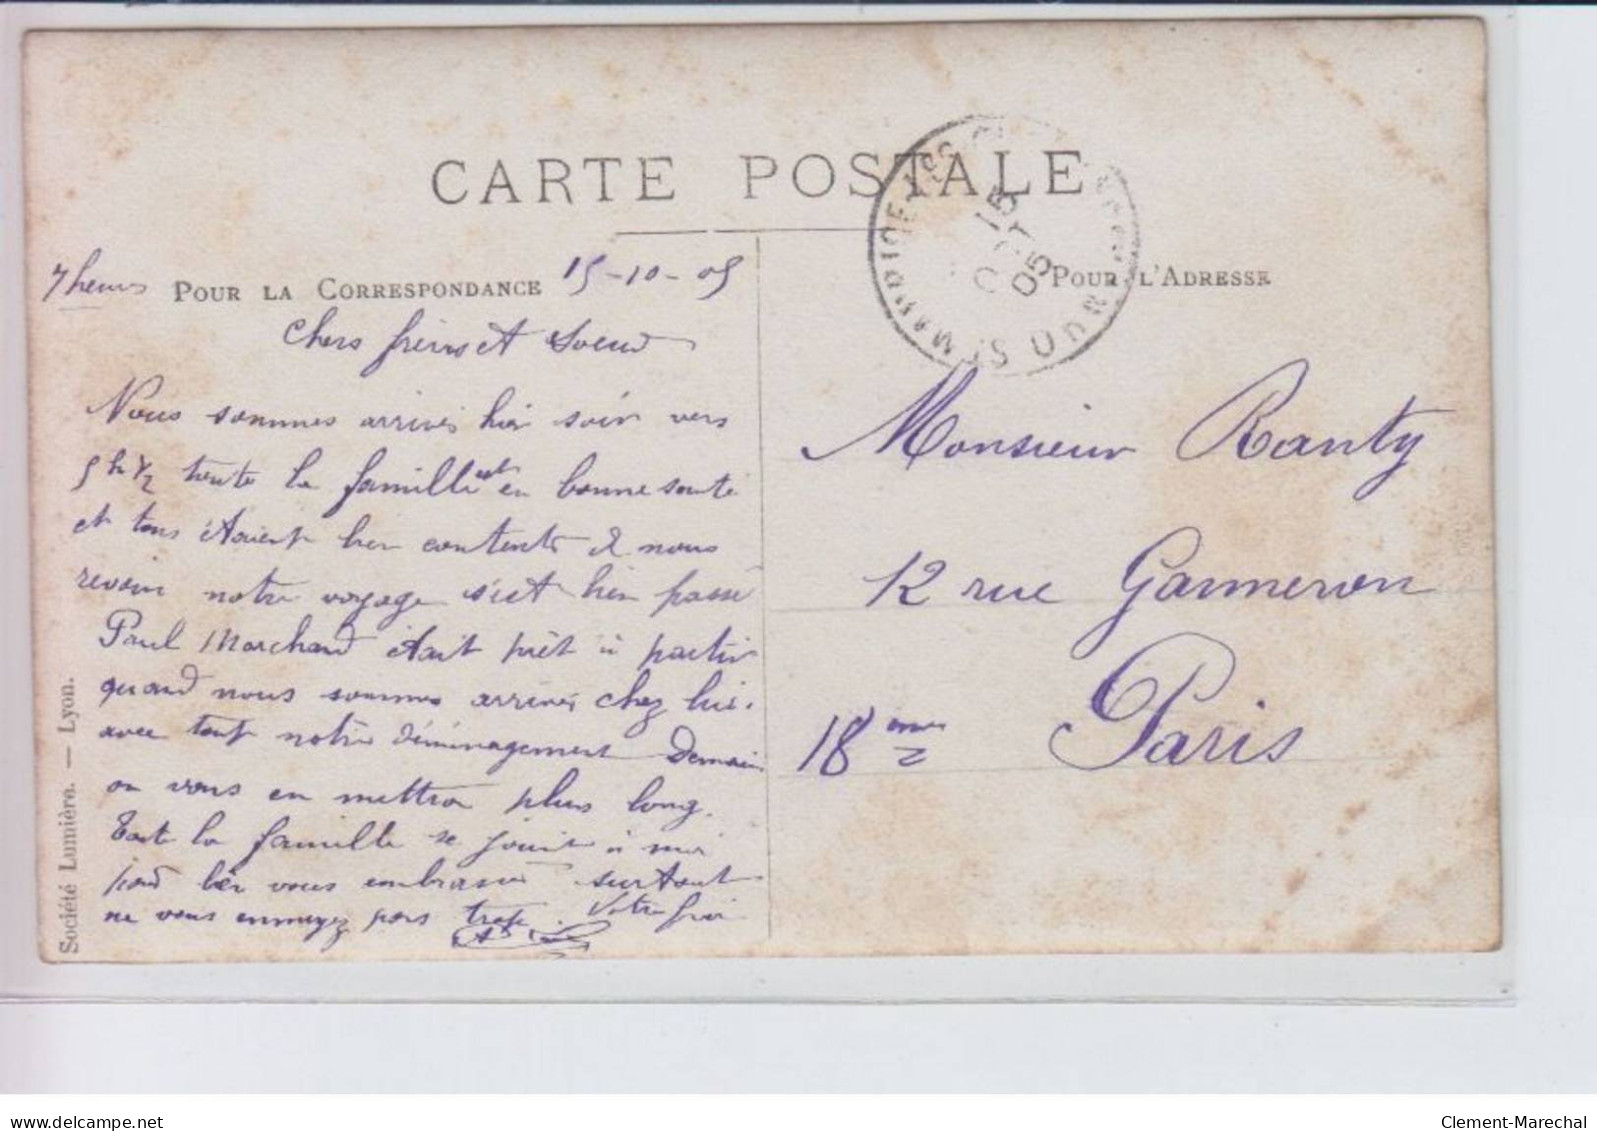 CARTE POSTALE
7 heures POUR LA CORRESPONDANCE 15-10-05
Chers frères et Soeur
Nous sommes arrivés hier soir vers
5 h 1/2 toute la famille est en bonne santé
et tous étaient bien contents de nous
revoir notre voyage s'est bien passé
Paul Marchand était prêt à partir
quand nous sommes arrivés chez lui.
avec tout notre déménagement Demain
on vous en mettra plus long.
Toute la famille se joint à moi
pour bien vous embrasser surtout
ne vous ennuyez pas trop. Votre frère
Société Lumière. — Lyon.
15
OCT
05
POUR L'ADRESSE
Monsieur Ranty
12 rue Ganneron
18eme Paris
www.delcampe.net
Clement-Marechal